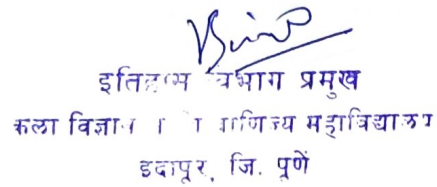 इतिहास विभाग प्रमुख
कला विज्ञान वाणिज्य महाविद्यालय
इंदापूर, जि. पूणें